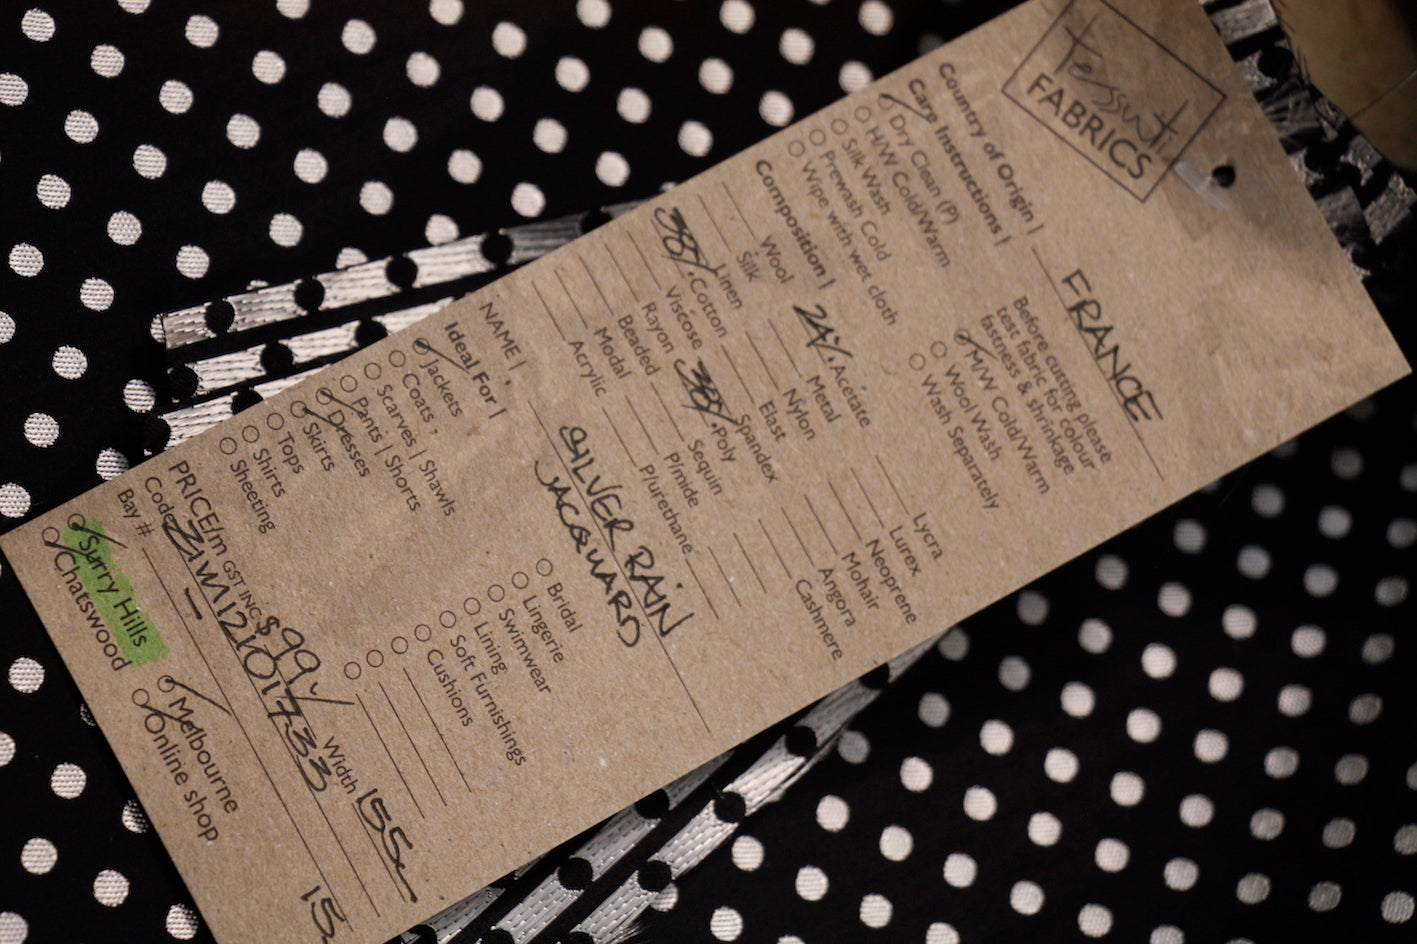 tessuti
FABRICS
Country of Origin | FRANCE
Care Instructions |
Dry Clean (P)
H/W Cold/Warm
Silk Wash
Prewash Cold
Wipe with wet cloth
Before cutting please
test fabric for colour
fastness & shrinkage
M/W Cold/Warm
Wool Wash
Wash Separately
Composition |
Wool 24% Acetate Lycra
Silk Metal Lurex
Linen Nylon Neoprene
38% Cotton Elast Mohair
Viscose Spandex Angora
Rayon 38% Poly Cashmere
Beaded Sequin
Modal P/mide
Acrylic P/urethane
NAME | SILVER RAIN
JACQUARD
Ideal For |
Jackets
Coats
Scarves | Shawls
Pants | Shorts
Dresses
Skirts
Tops
Shirts
Sheeting
Bridal
Lingerie
Swimwear
Lining
Soft Furnishings
Cushions
PRICE/m GST INC $99 Width 155
Code ZIW12KO1733
Bay # 15
Surry Hills Melbourne
Chatswood Online shop